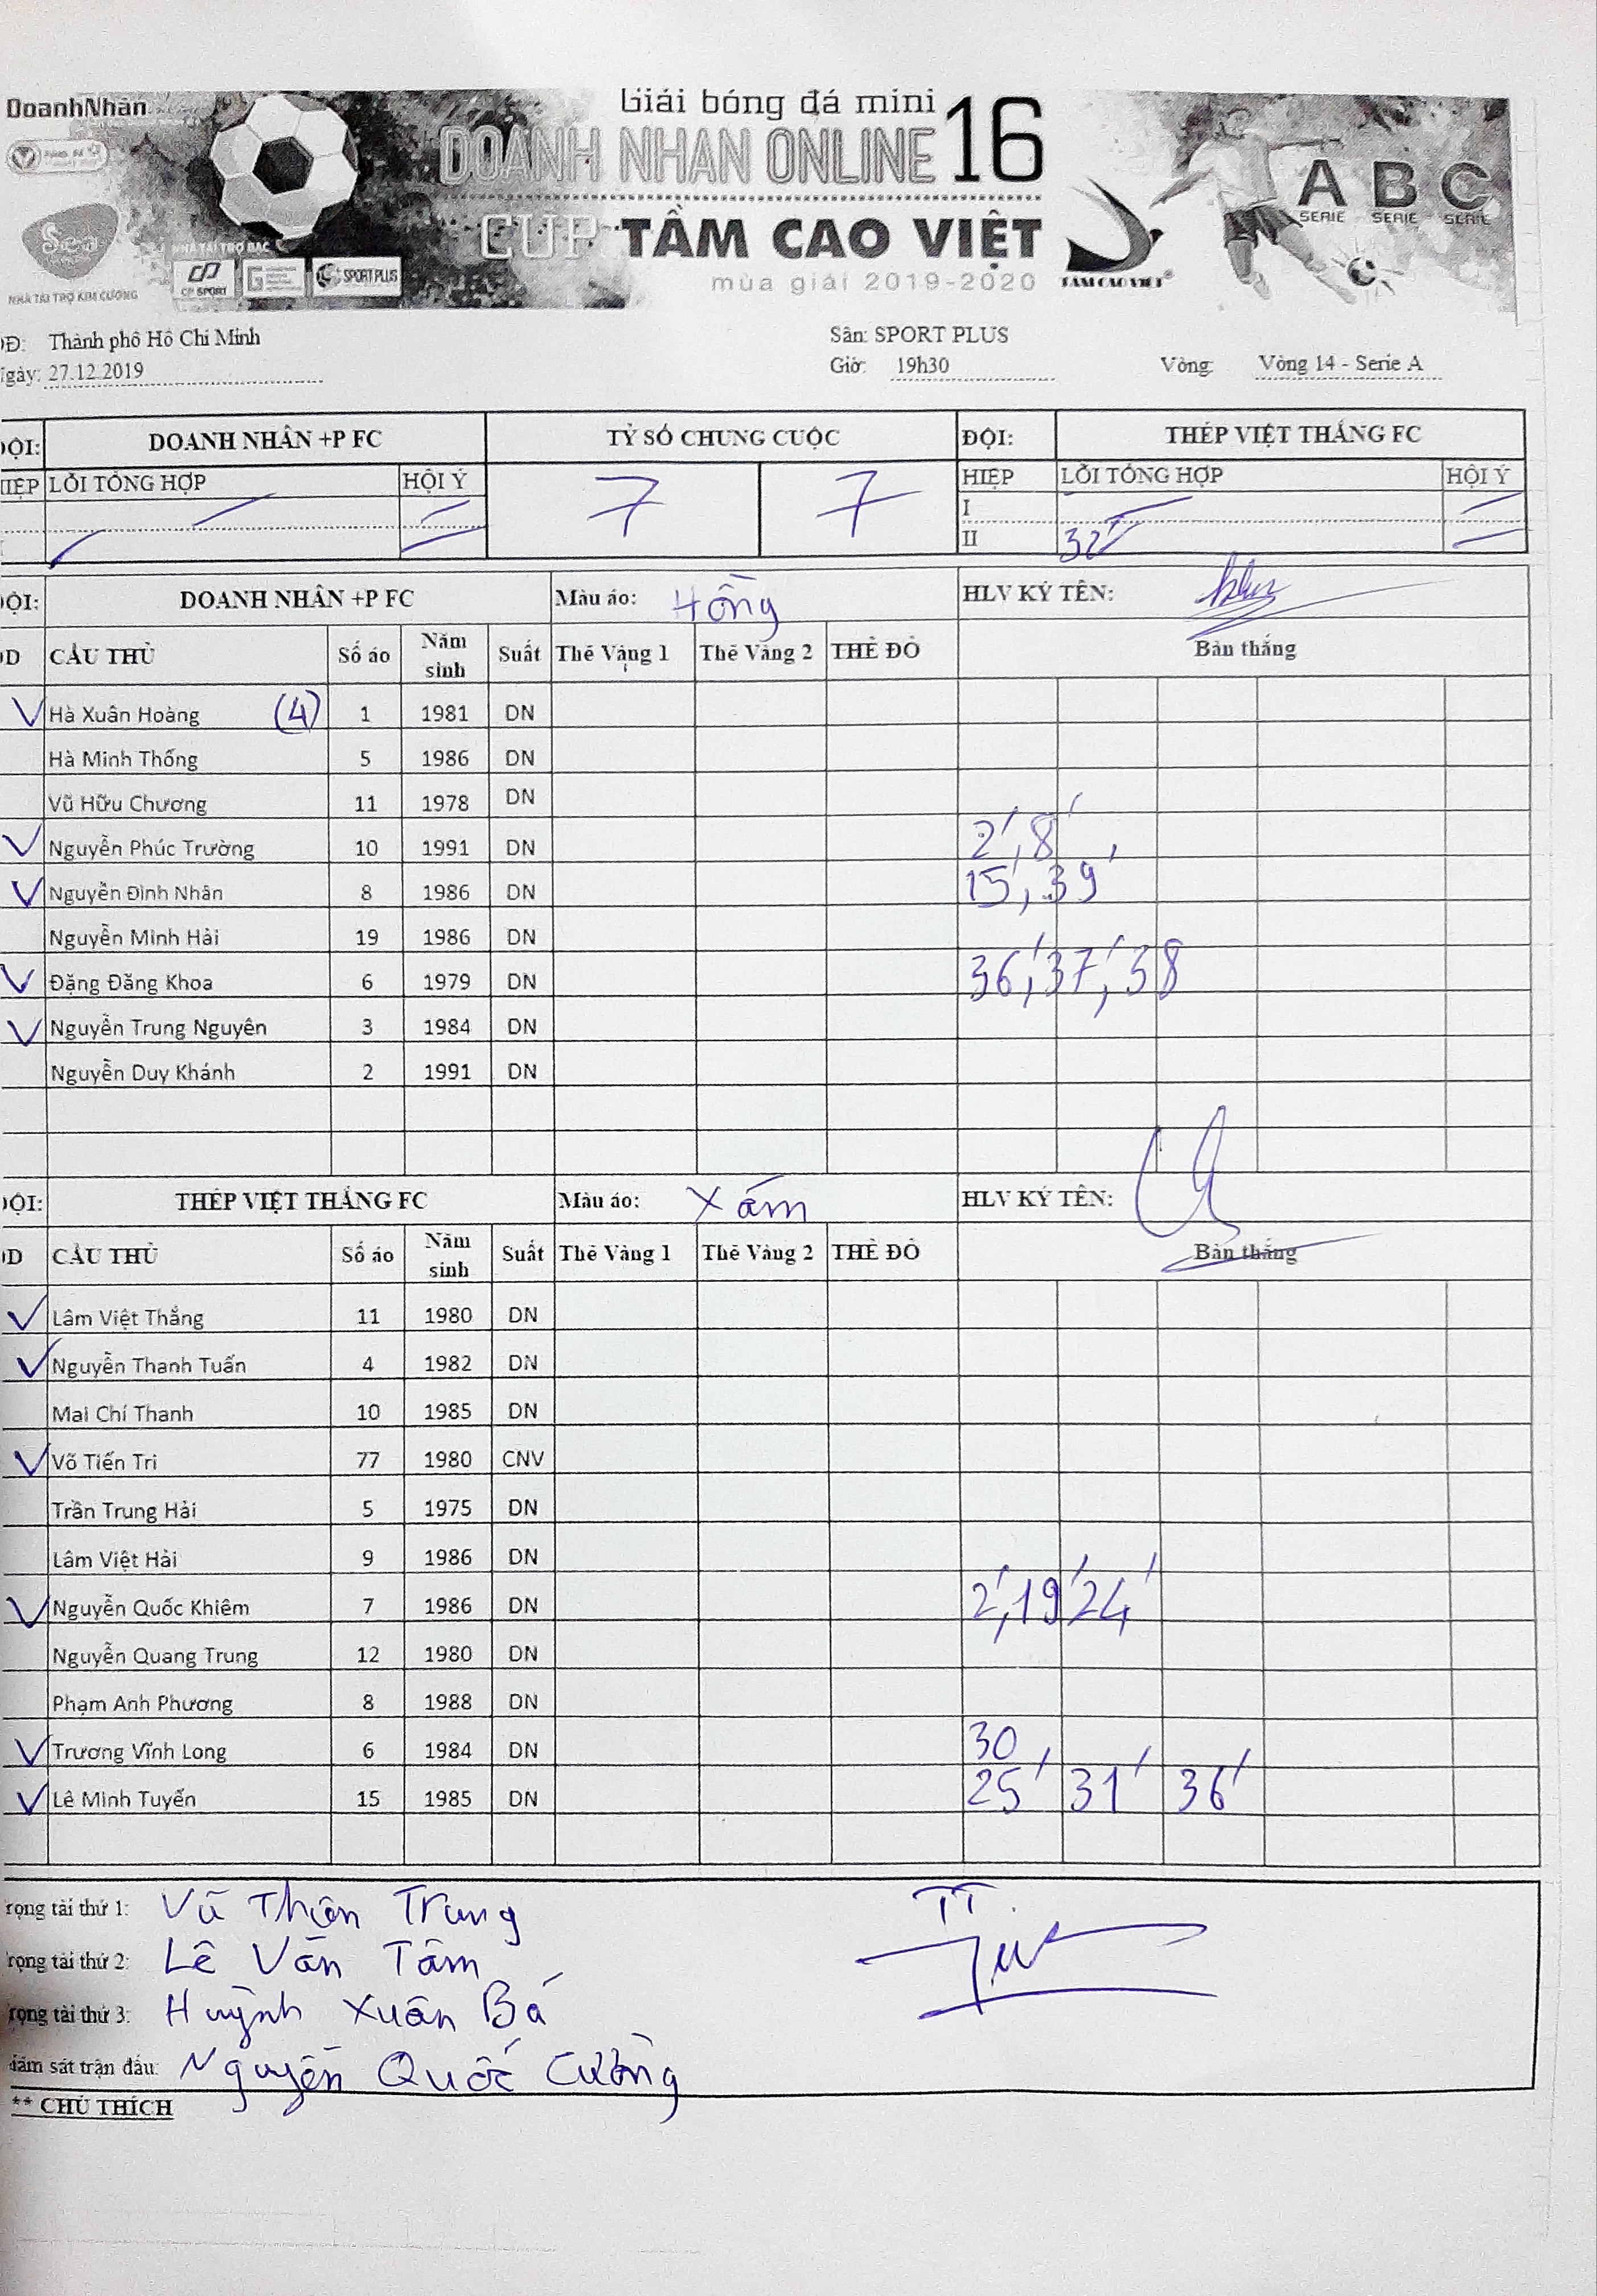 DoanhNhân
Giải bóng đá mini
DOANH NHAN ONLINE 16
CUP TẦM CAO VIỆT
mùa giải 2019-2020
TAM CAO VIET
A B C
SERIE SERIE SERIE
NHÀ TÀI TRỢ BẠC
CP SPORT
SPORT PLUS
NHÀ TÀI TRỢ KIM CƯƠNG
Đ: Thành phố Hồ Chí Minh Sân: SPORT PLUS
gày: 27.12.2019 Giờ: 19h30 Vòng: Vòng 14 - Serie A
ỘI: DOANH NHÂN +P FC TỶ SỐ CHUNG CUỘC ĐỘI: THÉP VIỆT THẮNG FC
IỆP LỖI TỔNG HỢP HỘI Ý 7 7 HIỆP LỖI TỔNG HỢP HỘI Ý
I
II 32'
ỘI: DOANH NHÂN +P FC Màu áo: Hồng HLV KÝ TÊN:
D CẦU THỦ Số áo Năm sinh Suất Thẻ Vàng 1 Thẻ Vàng 2 THẺ ĐỎ Bàn thắng
Hà Xuân Hoàng (4) 1 1981 DN
Hà Minh Thống 5 1986 DN
Vũ Hữu Chương 11 1978 DN
Nguyễn Phúc Trường 10 1991 DN 2', 8'
Nguyễn Đình Nhân 8 1986 DN 15', 39'
Nguyễn Minh Hải 19 1986 DN
Đặng Đăng Khoa 6 1979 DN 36', 37', 38
Nguyễn Trung Nguyên 3 1984 DN
Nguyễn Duy Khánh 2 1991 DN
ỘI: THÉP VIỆT THẮNG FC Màu áo: Xám HLV KÝ TÊN:
D CẦU THỦ Số áo Năm sinh Suất Thẻ Vàng 1 Thẻ Vàng 2 THẺ ĐỎ Bàn thắng
Lâm Việt Thắng 11 1980 DN
Nguyễn Thanh Tuấn 4 1982 DN
Mai Chí Thanh 10 1985 DN
Võ Tiến Tri 77 1980 CNV
Trần Trung Hải 5 1975 DN
Lâm Việt Hải 9 1986 DN
Nguyễn Quốc Khiêm 7 1986 DN 2', 19' 24'
Nguyễn Quang Trung 12 1980 DN
Phạm Anh Phương 8 1988 DN
Trương Vĩnh Long 6 1984 DN 30
Lê Minh Tuyển 15 1985 DN 25' 31' 36'
rọng tài thứ 1: Vũ Thiên Trang TT.
rọng tài thứ 2: Lê Văn Tâm
rọng tài thứ 3: Huỳnh Xuân Bá
iám sát trận đấu: Nguyễn Quốc Cường
** CHÚ THÍCH